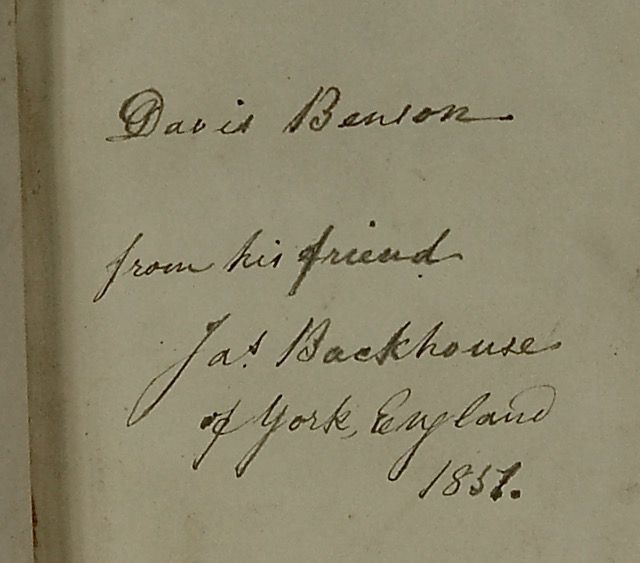 Davis Benson
from his friend
Jas. Backhouse
of York, England
1851.